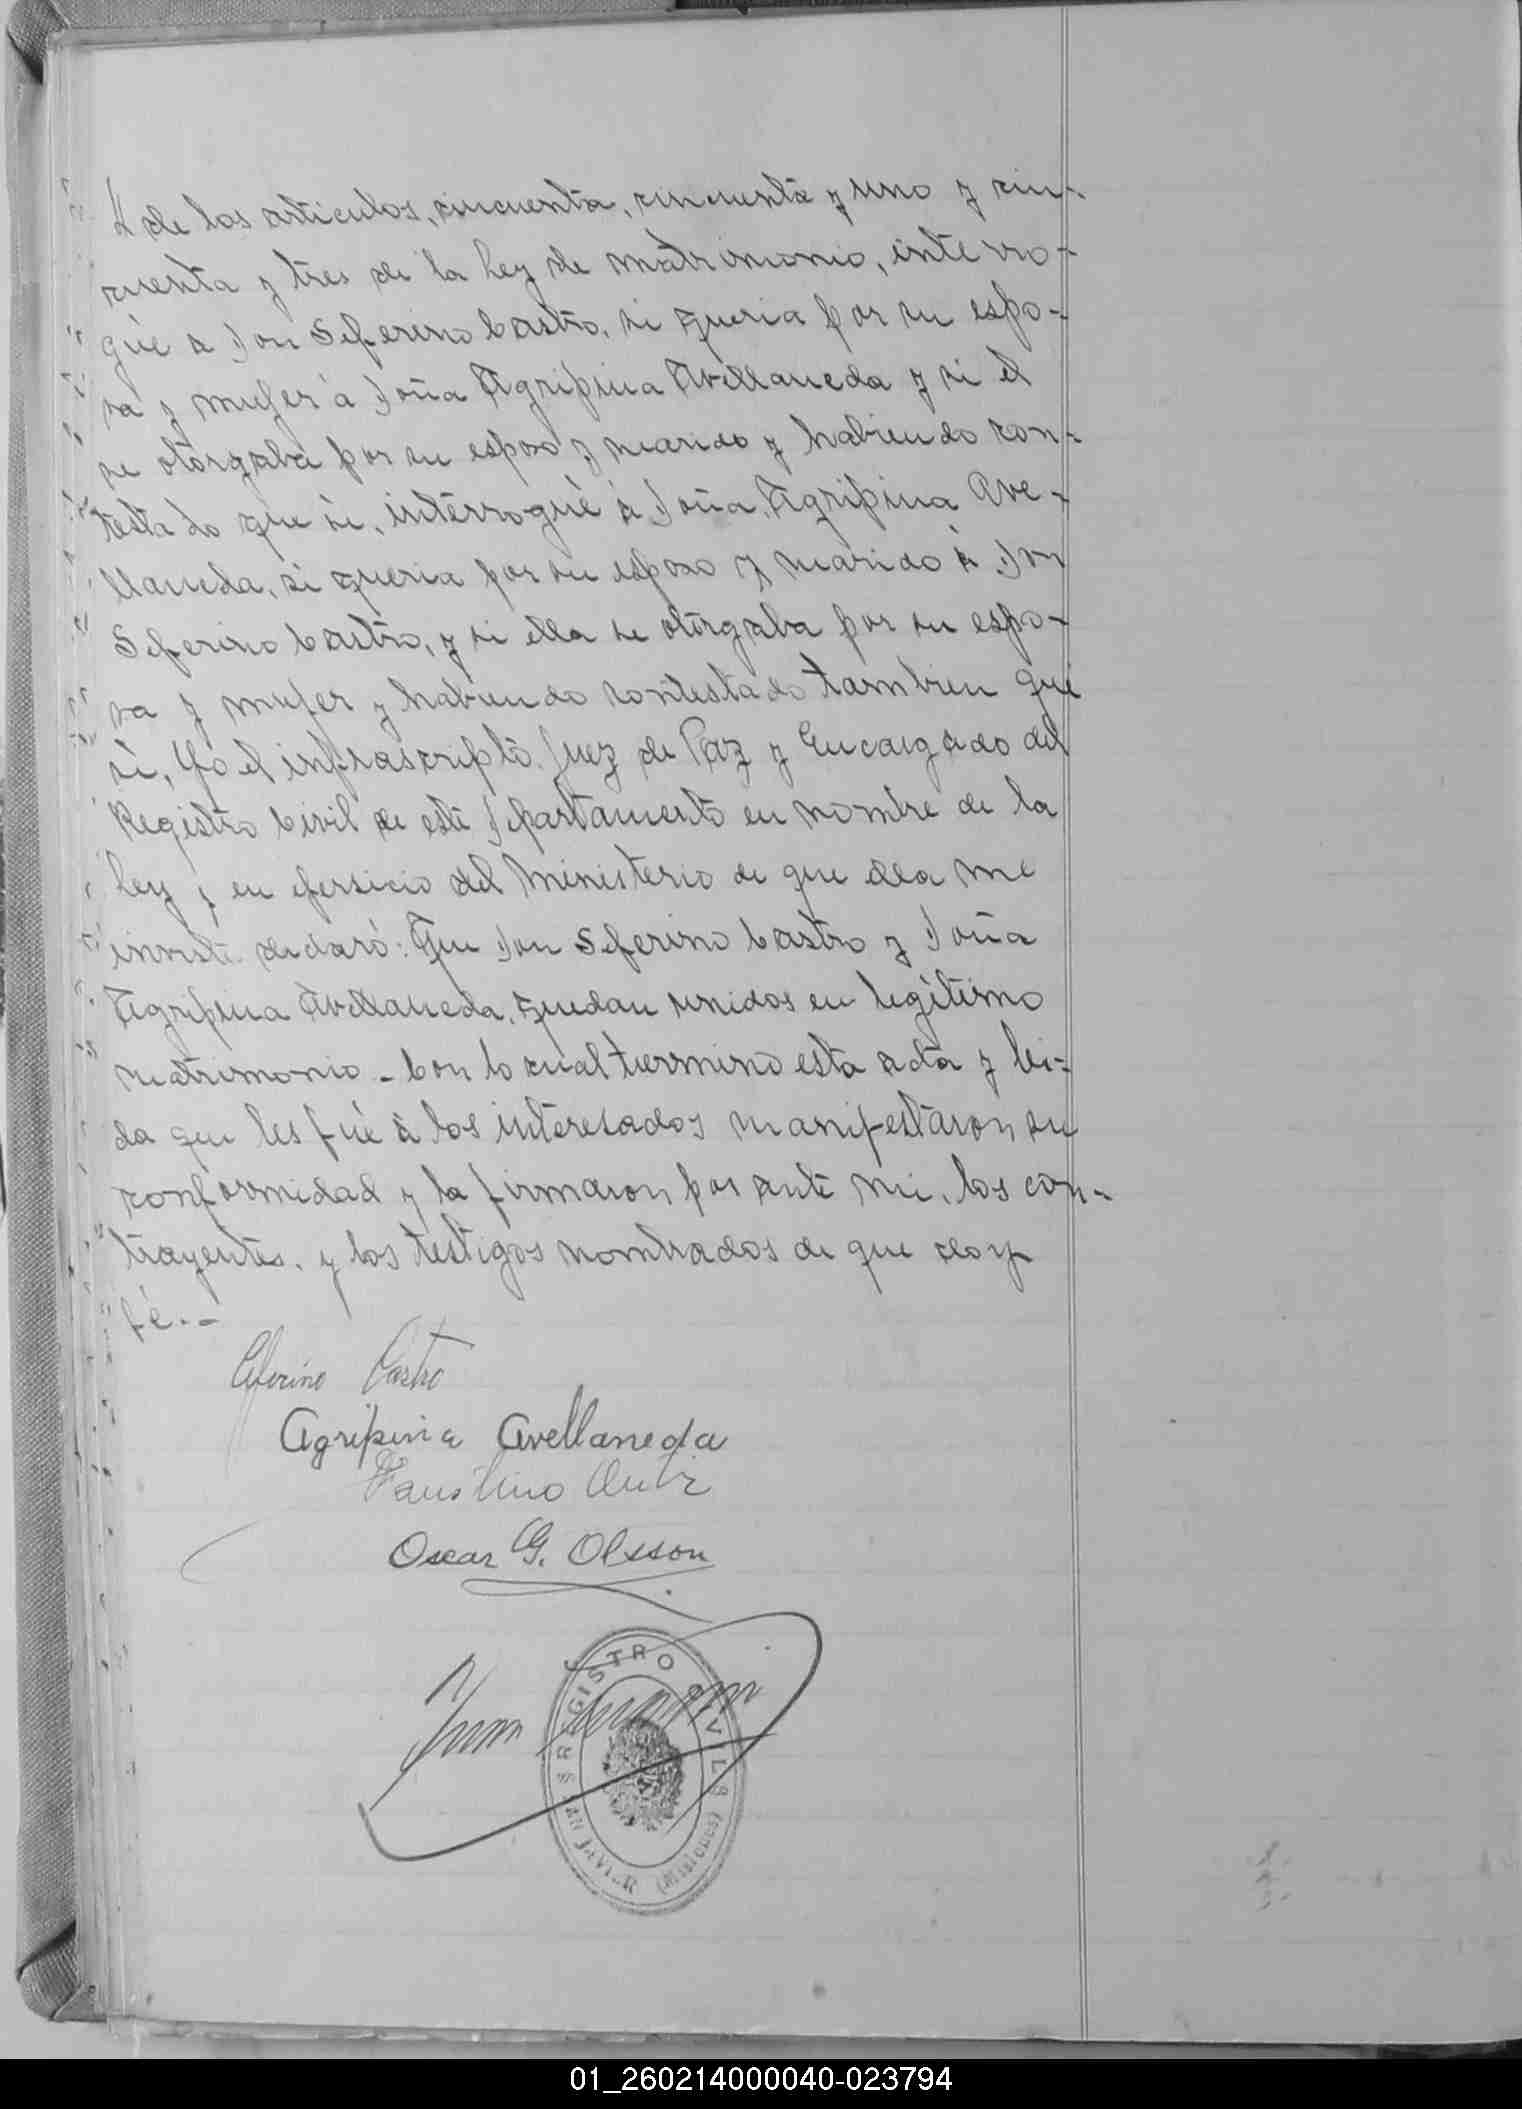 de los articulos, cincuenta, cincuenta y uno y cin-
cuenta y tres de la ley de matrimonio, interro-
gué a Don Seferino Castro, si queria por su espo-
sa y mujer á Doña Agripina Avellaneda y si el
se otorgaba por su esposo y marido y habiendo con-
testado que si, interrogué á Doña Agripina Ave-
llaneda, si queria por su esposo y marido á Don
Seferino Castro, y si ella se otorgaba por su espo-
sa y mujer y habiendo contestado tambien que
si, Yo el infrascripto Juez de Paz y Encargado del
Registro Civil de este Departamento en nombre de la
ley y en ejersicio del ministerio de que ella me
inviste declaró: Que Don Seferino Castro y Doña
Agripina Avellaneda, quedan unidos en legítimo
matrimonio - Con lo cual termino esta acta y lei-
da que les fué á los interesados manifestaron su
conformidad y la firmaron por ante mi, los con-
trayentes, y los testigos nombrados de que doy
fé.-
Ceferino Castro
Agripina Avellaneda
Faustino
Oscar G. Olsson
Juan
REGISTRO CIVIL
SAN JAVIER (Misiones)
01_260214000040-023794